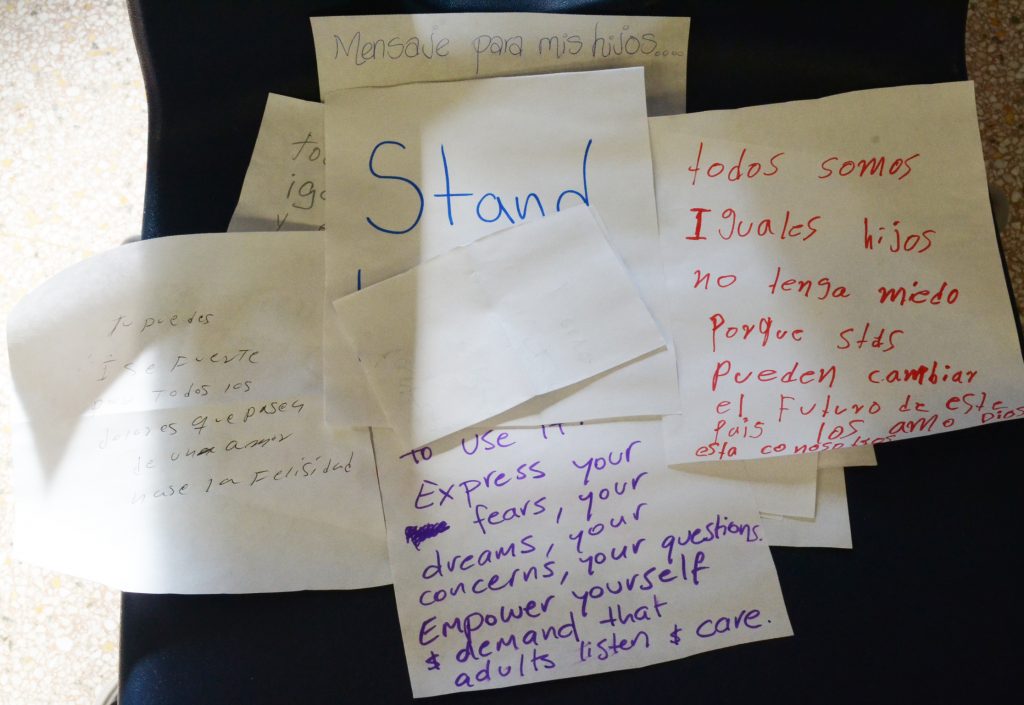 Mensaje para mis hijos....
Stand
todos somos
Iguales hijos
no tenga miedo
Porque stds
Pueden cambiar
el Futuro de este
Pais los amo Dios
esta conosotros
tu puedes
I se Fuerte
todos los
dolores que pasen
de un amor
nase la Felisidad
to use it!
Express your
fears, your
dreams, your
concerns, your questions.
Empower yourself
& demand that
adults listen & care.